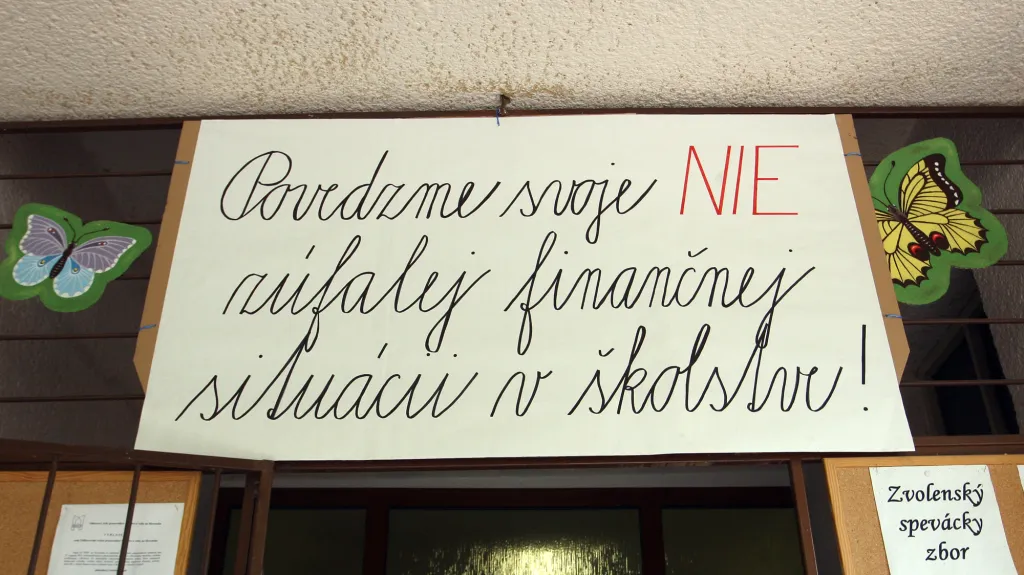 Povedzme svoje NIE
zúfalej finančnej
situácii v školstve!
Zvolenský
spevácky
zbor